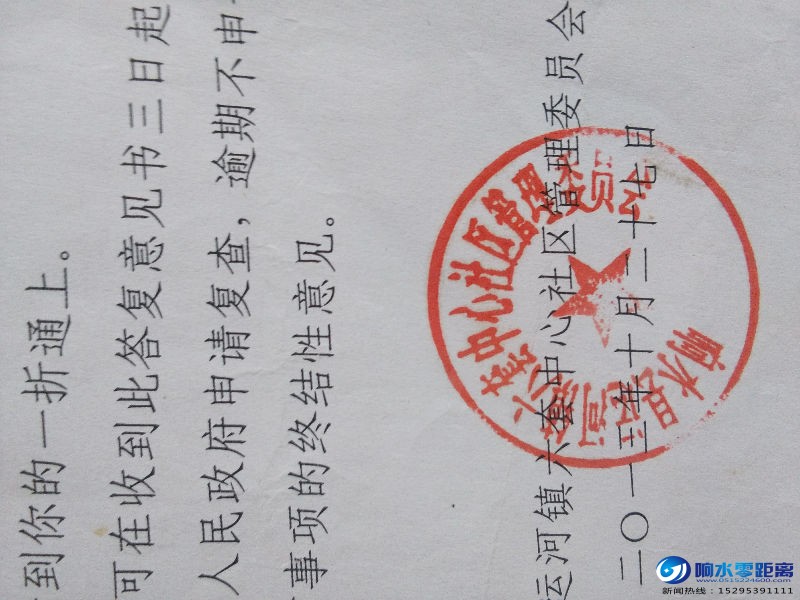 到你的一折通上。
可在收到此答复意见书三日起
人民政府申请复查，逾期不申
事项的终结性意见。
运河镇六套中心社区管理委员会
二〇一三年十月二十七日
响水县运河镇六套中心社区管理委员会
响水零距离
www.0515224600.com
新闻热线：15295391111